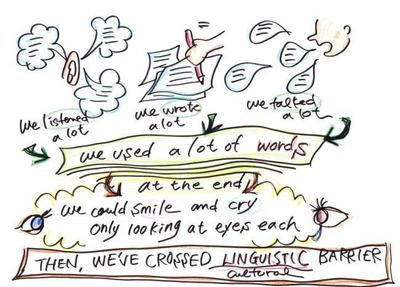 we listened
a lot
we wrote
a lot
we talked
a lot
we used a lot of words
at the end
we could smile and cry
only looking at eyes each
THEN, WE'VE CROSSED LINGUISTIC BARRIER
cultural